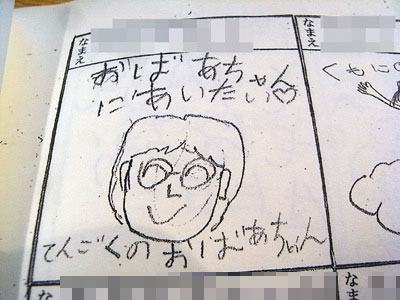 なまえ
おばあちゃん
にあいたい♡
てんごくの おばあちゃん
なまえ
くもに
な
なまえ